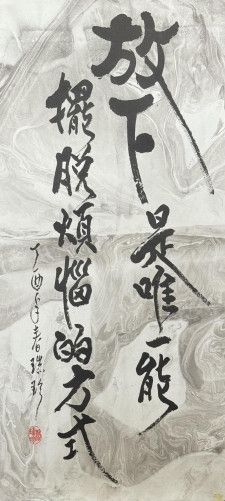 放下是唯一能
擺脫煩惱的方式
丁酉年春